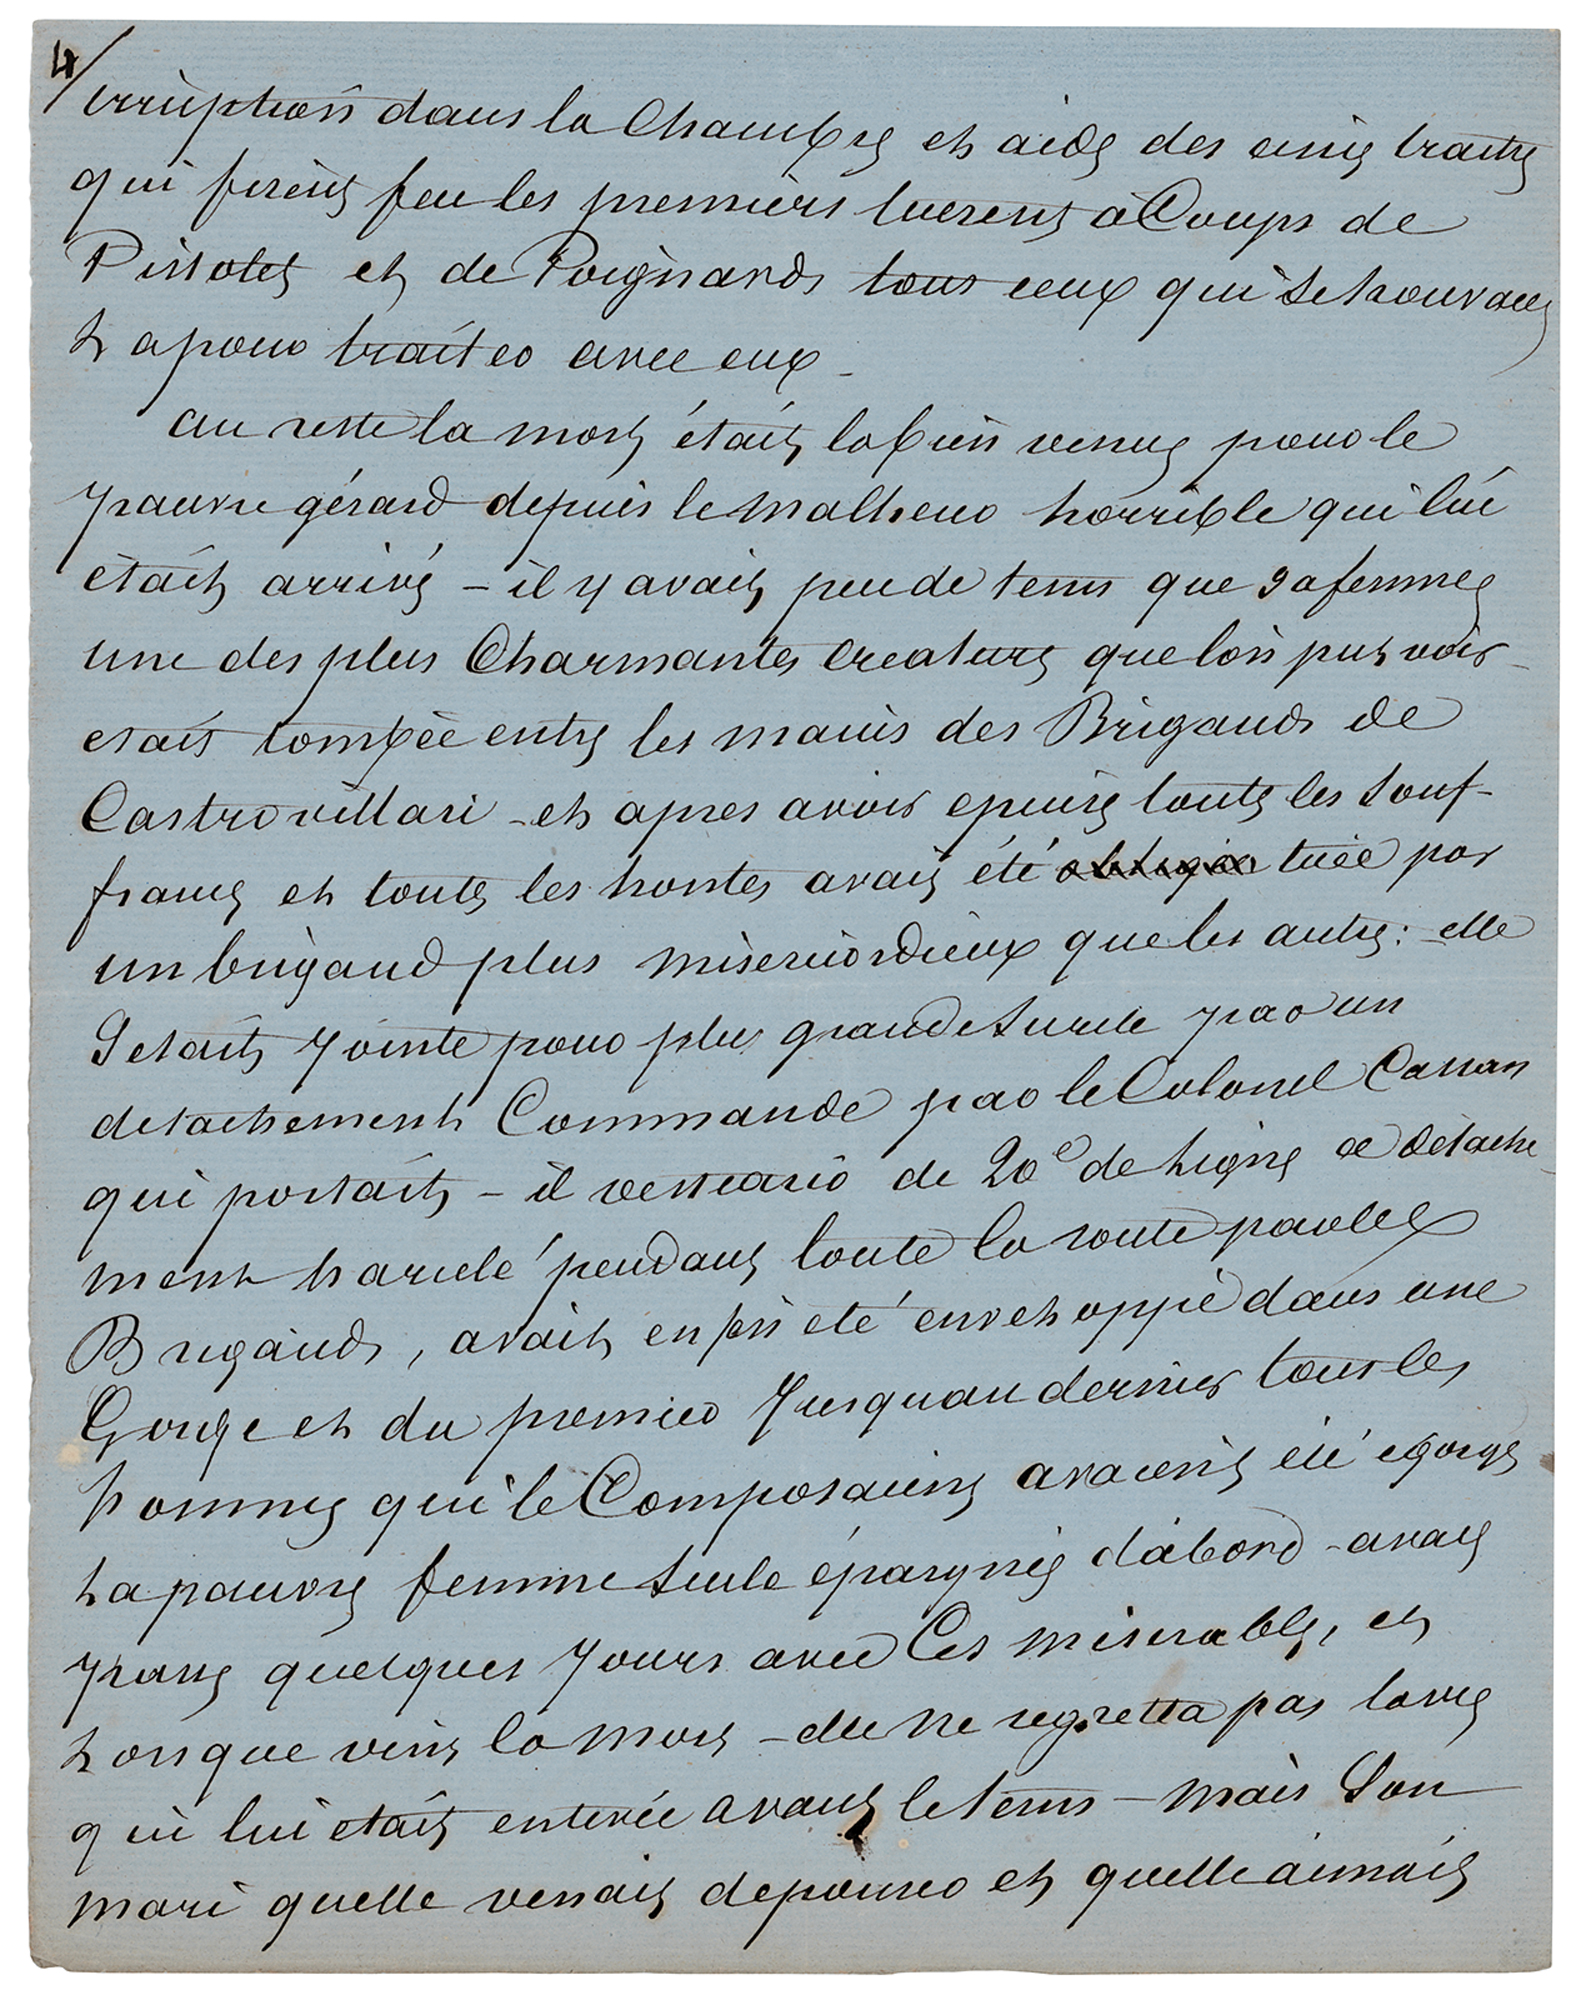 4/
irruption dans la Chambre et aidé des cinq traitres
qui firent feu les premiers tuerent a Coups de
Pistolets et de Poignards tous ceux qui se trouvaient
La pour traiter avec eux _
au reste la mort était la bien venue pour le
pauvre gérard depuis le Malheur horrible qui lui
était arrivé – il y avait peu de tems que sa femme
une des plus Charmantes creatures que lon put voir
etait tombée entre les mains des Brigands de
Castrovillari – et apres avoir epuisé toutes les souf-
frances et toutes les hontes avait été tuée par
un brigand plus misericordieux que les autres : elle
Setait Jointe pour plus grande Sureté par un
detachement Commandé par le Colonel
qui portait – il de 20e de Ligne ce détache-
ment harcelé pendant toute la route par les
Brigands, avait enfin eté enveloppé dans une
Gorge et du premier Jusquau dernier tous les
hommes qui le Composaient avaient été egorgés
La pauvre femme Seule épargnée dabord – avait
passé quelques Jours avec Ces miserables, et
Lorsque vint la Mort – elle ne regretta pas la vie
qui lui etait enlevée avant le tems – Mais Son
mari quelle venait depouser et quelle aimait